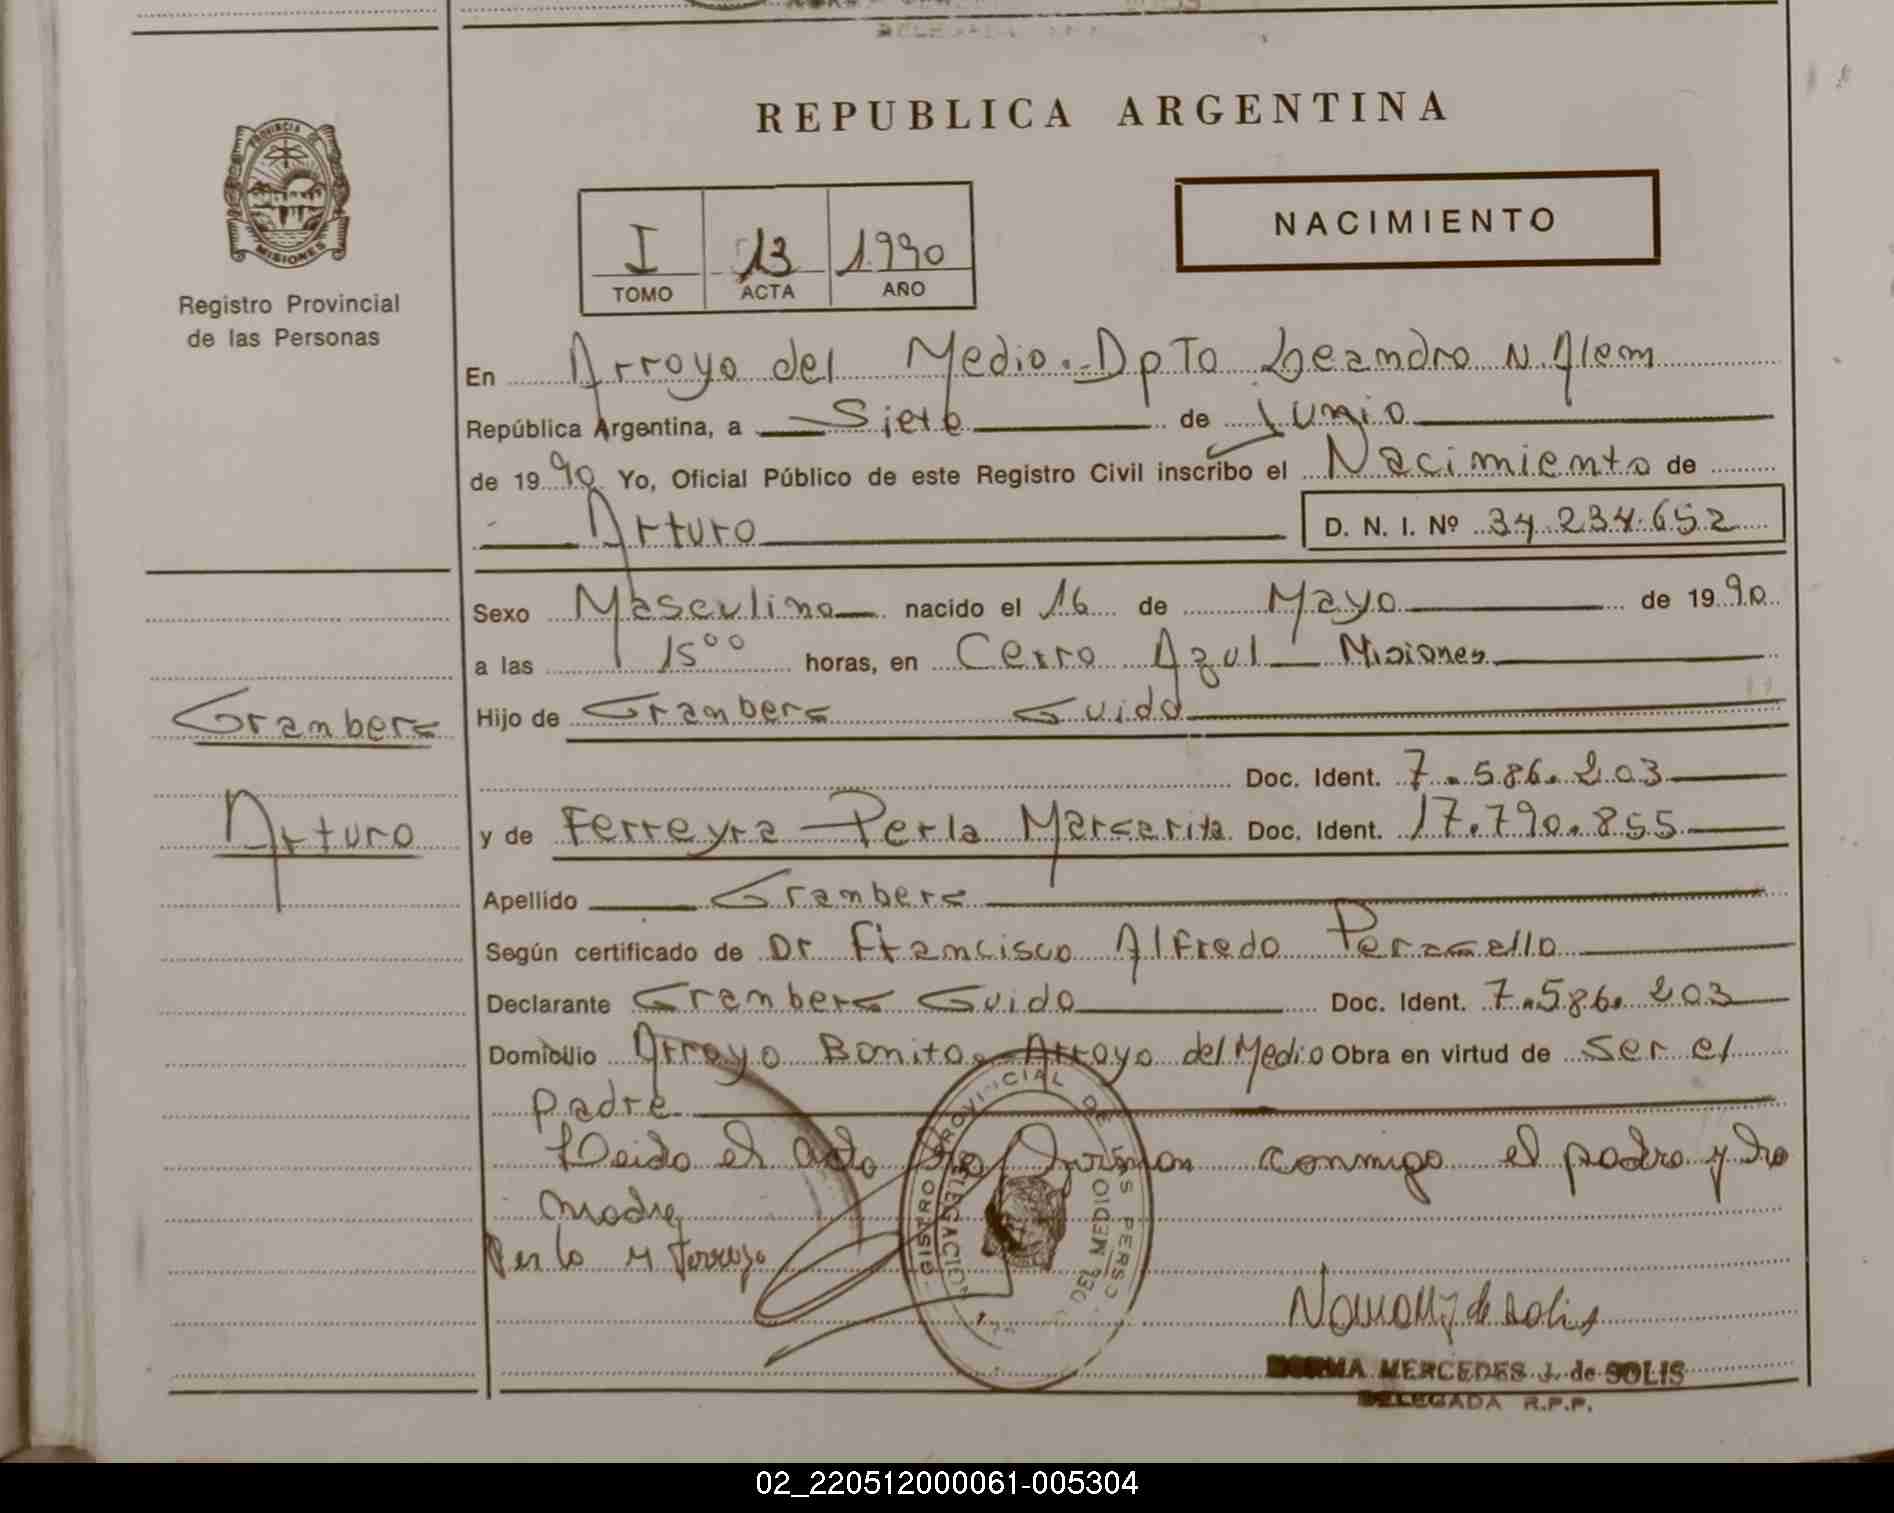 REPUBLICA ARGENTINA
PROVINCIA DE
MISIONES
Registro Provincial
de las Personas
NACIMIENTO
I 13 1990
TOMO ACTA AÑO
En Arroyo del Medio.- Dpto Leandro N. Alem
República Argentina, a Siete de Junio
de 1990 Yo, Oficial Público de este Registro Civil inscribo el Nacimiento de
Arturo D. N. I. Nº 34.234.652
Sexo Masculino nacido el 16 de Mayo de 1990
a las 15⁰⁰ horas, en Cerro Azul Misiones
Gramberg
Hijo de Gramberg Guido
Doc. Ident. 7.586.203
Arturo
y de Ferreyra Perla Margarita Doc. Ident. 17.790.855
Apellido Gramberg
Según certificado de Dr Francisco Alfredo Peragello
Declarante Gramberg Guido Doc. Ident. 7.586.203
Domicilio Arroyo Bonito - Arroyo del Medio Obra en virtud de ser el
padre
Leido el acta la firman conmigo el padre y la
madre
Perla M Ferreyra
NORMA MERCEDES J. de SOLIS
DELEGADA R.P.P.
02_220512000061-005304